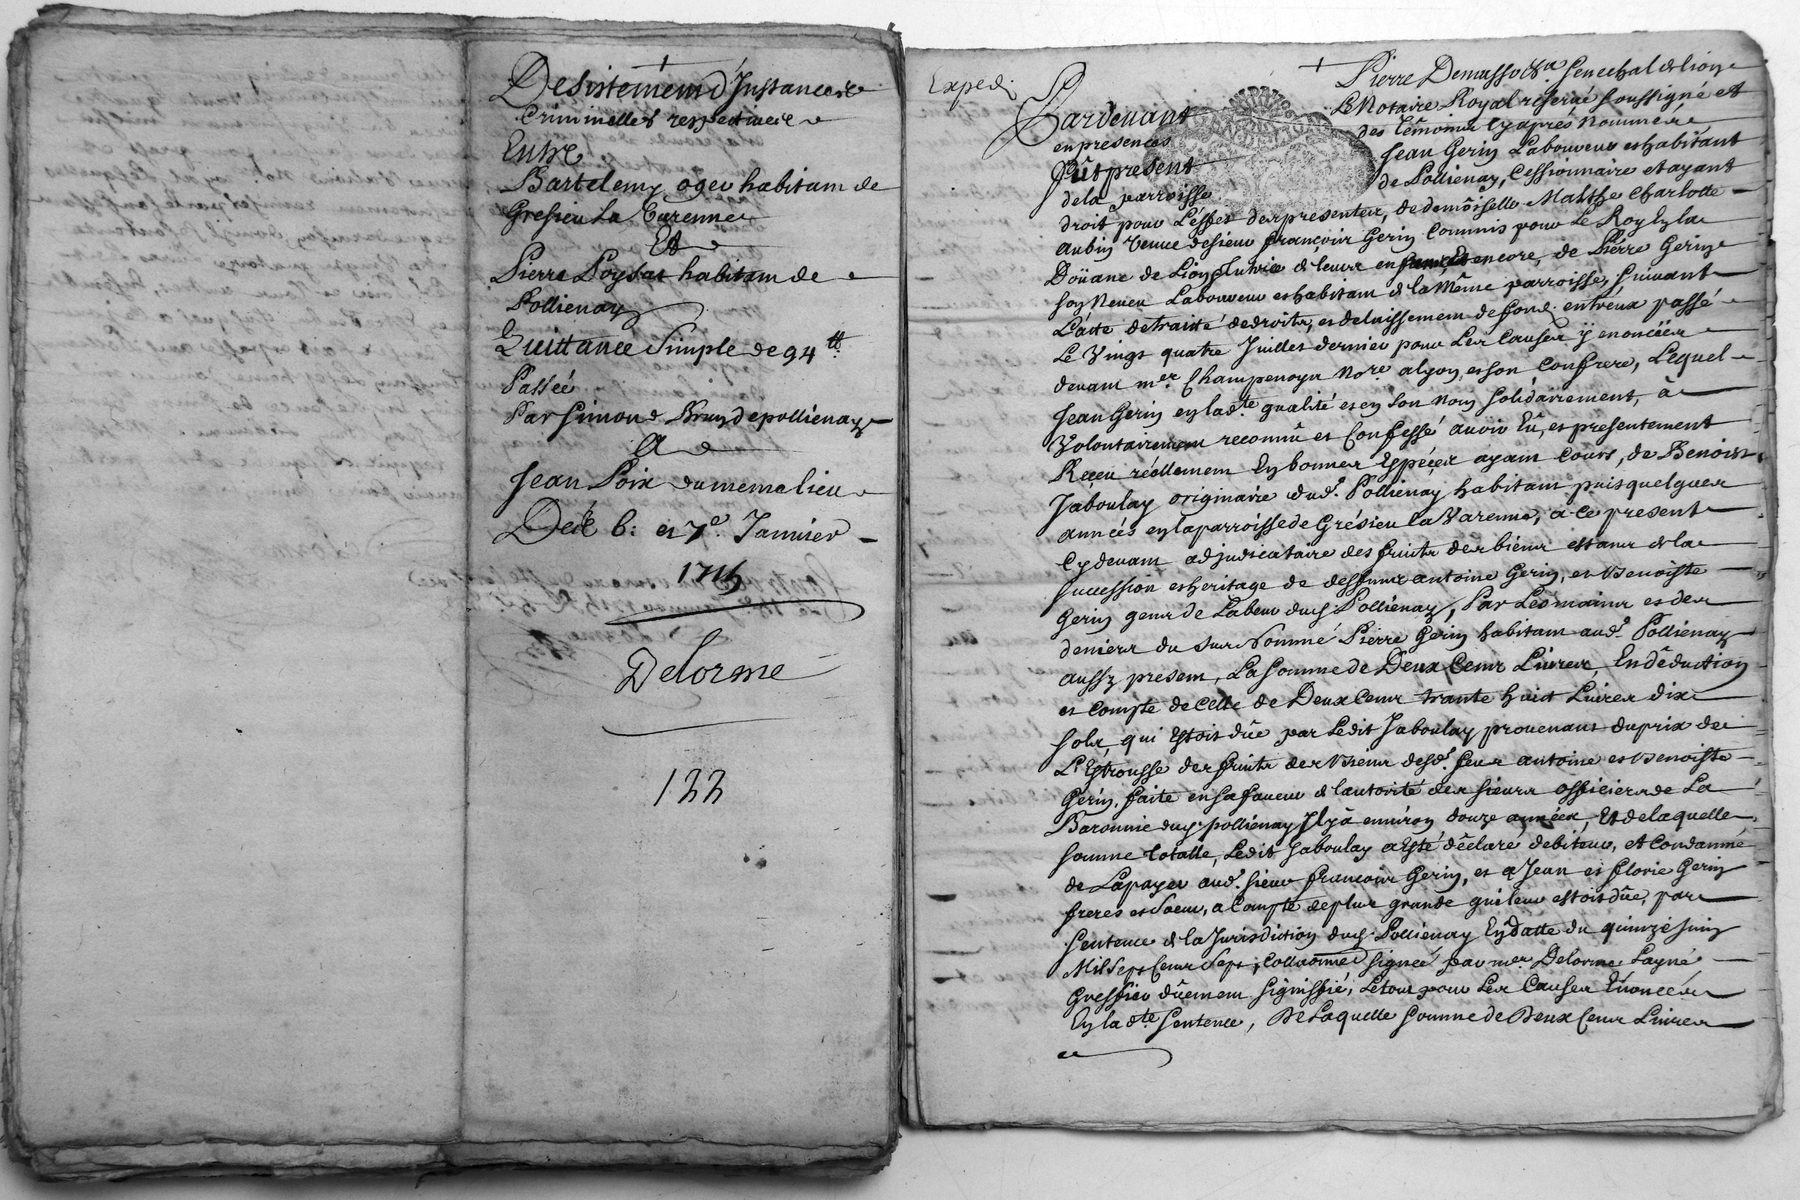 Desistement d'Instances
Criminelles respectives
Entre
Bartelemy oger habitant de
Gresieu La Varenne
Et
Pierre Poysat habitant de
Pollienay
Quittance Simple de 94tt
Passée
Par Simond Brun de pollienay
A
Jean Poix du meme lieu
Des 6: et 7e Janvier
1715
Delorme
122
Exped.
Pierre Demasso &a. Senechal de lion
Pardevant Le Notaire Royal reservé soussigné et
en presences des têmoins Cy aprés Nommés
Fût present Jean Gerin Laboureur et habitant
de la parroisse de Pollienay, Cessionnaire et ayant
droit pour L'effet des presentes, de demôiselle Marthe Charlotte
aubin Veuve de sieur françois Gerin Commis pour Le Roy En la
Doüane de Lion, tutrice de leurs enfans, Et encore, de Pierre Gerin
son Neveu Laboureur et habitant de la Même parroisse, suivant
L'acte de traitté de droits, et delaissement de fond. entreux passé
Le Vingt quatre Juillet dernier pour Les Causes ÿ enoncéés
devant mer. Champenoys Nore. a lyon, et son Confrere, Lequel
Jean Gerin en lad.te qualité et en Son Nom Solidairement, à
Volontairement reconnû et Confessé avoir Eû, et presentement
Receu réellement En bonnes Espéces ayant Cours, de Benoist
Jaboulay originaire dud. Pollienay habitant puis quelques
annéés en la parroisse de Grésieu la Varenne, a ce present
Cy devant adjudicataire des fruits des biens estans de la
succession et heritage de deffunts antoine Gerin, et Benoîste
Gerin gens de Labeur dud. Pollienay, Par Les mains et des
deniers du Sus Nommé Pierre Gerin habitant aud. Pollienay
aussy present, La Somme de Deux Cens Livres En dêduction
et Compte de Celle de Deux Cens trante huict Livres dix
sols, qui Estoit dûe par Ledit Jaboulay provenant du prix de
L'Estrousse des fruits des Biens desd. feus antoine et Benoiste
Gerin, faite en sa faveur de lautorité des sieurs officiers de La
Baronnie dud. pollienay Il y à environ douze années, Et de laquelle
somme totalle, Ledit Jaboulay a Esté dêclaré debiteur, et Condamné
de La payer aud. sieur francois Gerin, et a Jean et florie Gerin
freres et Soeur, a Compte de plus grande qui leur estoit dûe, par
Sentence de la Jurisdiction dud. Pollienay En datte du quinze Juin
Mil Sept Cens Sept, Collaonnée signée par mer. Delorme Layné
Greffier dûement signiffié, Le tout pour Les Causes Enoncéés
En lad.te Sentence, De Laquelle Somme de Deux Cens Livres